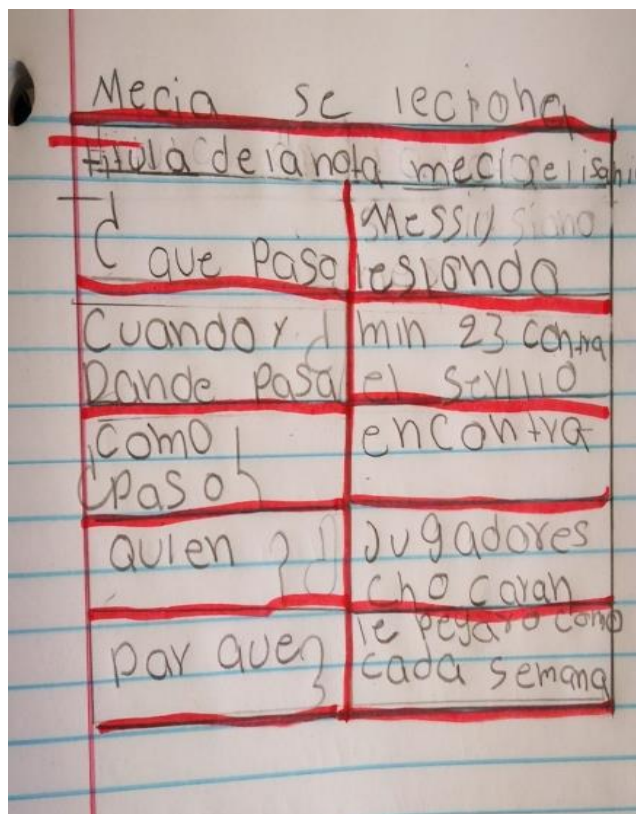 Mecia se lecroha
titula de la nota mecise lisohi
¿ que Paso Messi) siono
lesionda
Cuando y d min 23 contra
Dande Pasa el Sevillo
¿como encontra
paso?
quien ?¿ Jugadores
cho caran
par que? le pegaro como
cada semana